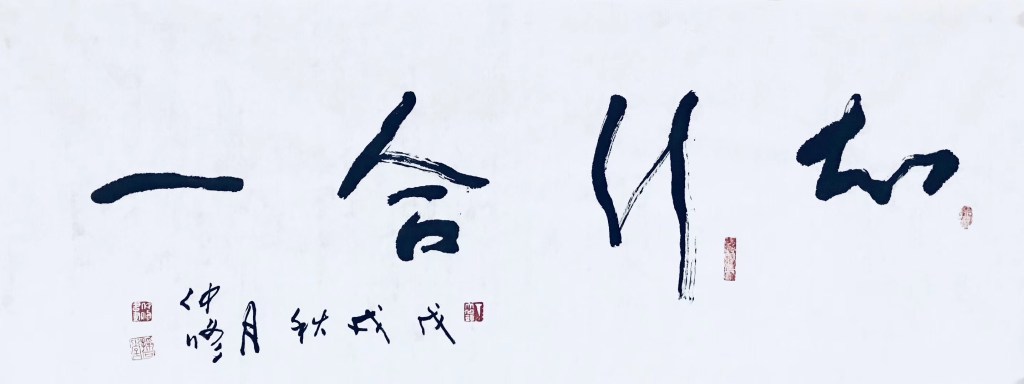 知行合一
戊戌秋月仲修